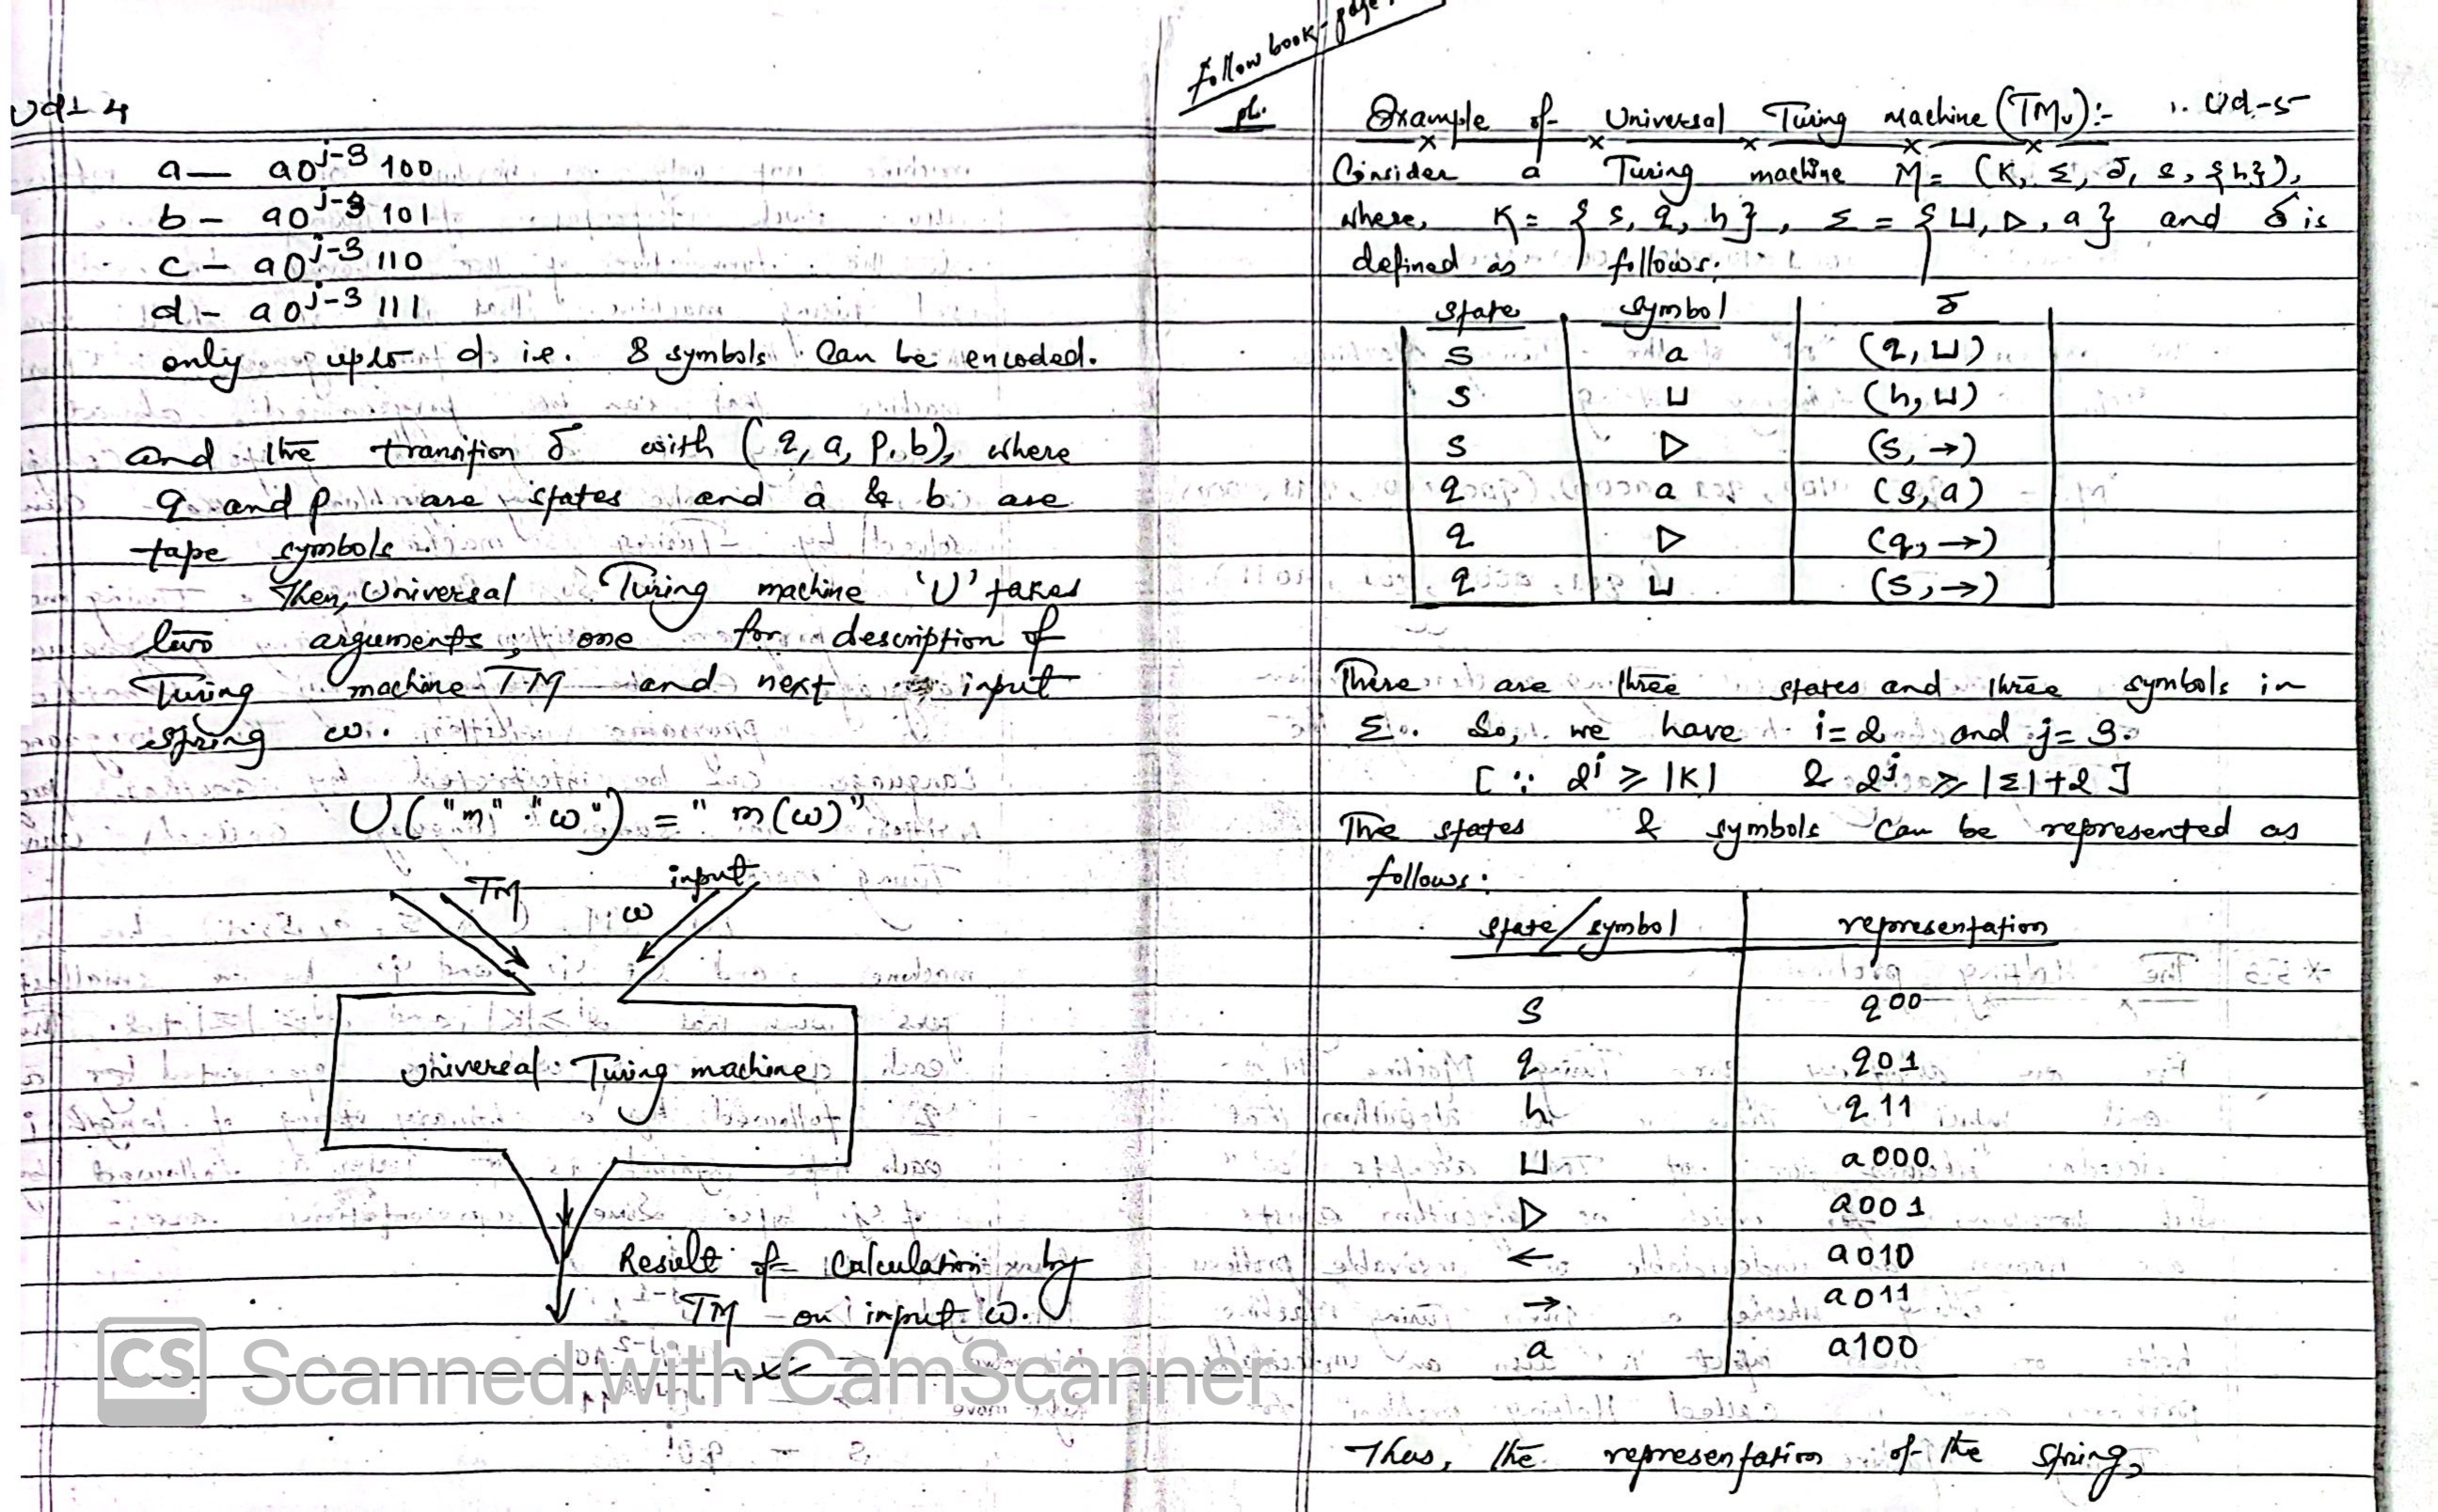 Ud-4
a — a0^{j-3} 100
b — a0^{j-3} 101
c — a0^{j-3} 110
d — a0^{j-3} 111
only upto d i.e. 8 symbols can be encoded.
and the transition δ with (q, a, p, b), where
q and p are states and a & b are
tape symbols.
Then, Universal Turing machine 'U' takes
two arguments, one for description of
Turing machine TM and next input
string ω.
U ("m" "ω") = "m(ω)"
TM
input
ω
Universal Turing machine
Result of Calculation by
TM on input ω.
Follow book - page
Ud-5
Example of Universal Turing Machine (TMu):-
Consider a Turing machine M = (K, Σ, δ, s, {h}),
where, K = {s, q, h}, Σ = {⊔, ▷, a} and δ is
defined as follows:
state symbol δ
s a (q, ⊔)
s ⊔ (h, ⊔)
s ▷ (s, →)
q a (s, a)
q ▷ (q, →)
q ⊔ (s, →)
There are three states and three symbols in
Σ. So, we have i=2 and j=3.
[∵ 2^i ≥ |K| & 2^j ≥ |Σ|+2]
The states & symbols can be represented as
follows:
state/symbol representation
s q00
q q01
h q11
⊔ a000
▷ a001
← a010
→ a011
a a100
Thus, the representation of the string,
CS Scanned with CamScanner